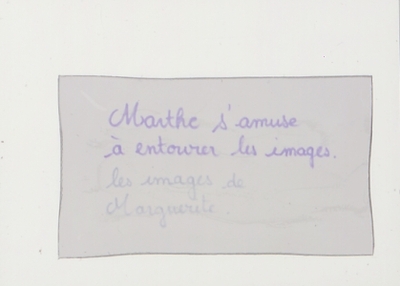 Marthe s'amuse
à entourer les images.
les images de
Marguerite.